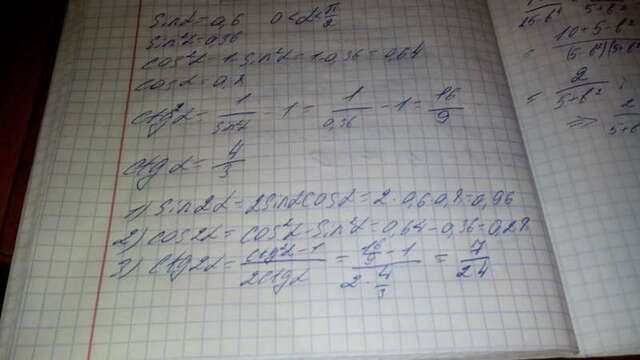 sinα=0,6 0<α<π/2
sin²α=0,36
cos²α=1-sin²α=1-0,36=0,64
cosα=0,8
ctg²α=1/sin²α-1=1/0,36-1=16/9
ctgα=4/3
1) sin2α=2sinαcosα=2·0,6·0,8=0,96
2) cos2α=cos²α-sin²α=0,64-0,36=0,28
3) ctg2α=(ctg²α-1)/(2ctgα)=(16/9-1)/(2·4/3)=7/24
25-b²
10+5-b²
= 2/(5+b²) ;
=> 2/(5+b